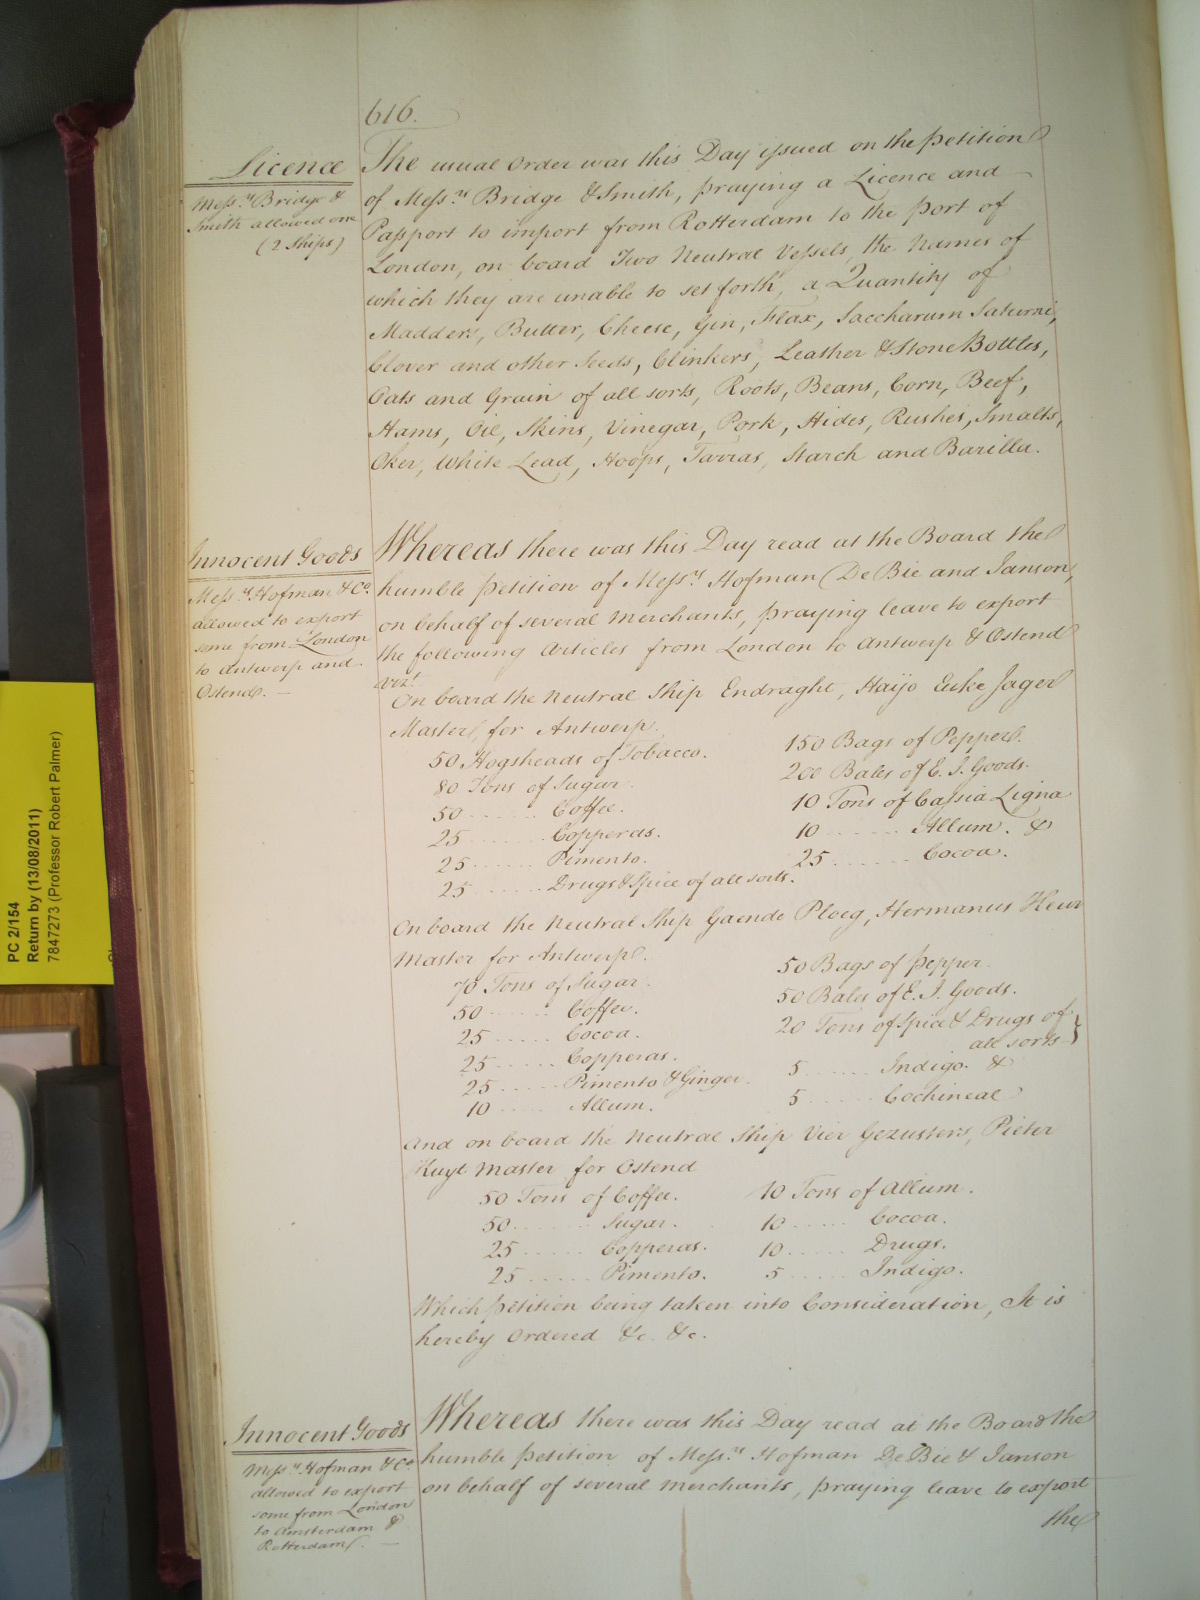 616.
Licence
Mess.rs Bridge &
Smith allowed one
(2 Ships)
The usual Order was this Day issued on the Petition
of Mess.rs Bridge & Smith, praying a Licence and
Passport to import from Rotterdam to the Port of
London, on board Two Neutral Vessels, the Names of
which they are unable to set forth, a Quantity of
Madders, Butter, Cheese, Gin, Flax, Saccharum Saturni,
Clover and other Seeds, Clinkers, Leather & Stone Bottles,
Oats and Grain of all sorts, Roots, Beans, Corn, Beef,
Hams, Oil, Skins, Vinegar, Pork, Hides, Rushes, Smalts,
Oker, White Lead, Hoops, Tarras, Starch and Barilla.
Innocent Goods
Mess.rs Hofman & Co.
allowed to export
some from London
to Antwerp and
Ostend. —
Whereas there was this Day read at the Board the
humble Petition of Mess.rs Hofman (De Bie and Janson,
on behalf of several Merchants, praying leave to export
the following Articles from London to Antwerp & Ostend
vizt.
On board the Neutral Ship Endraght, Haijo Euke Jager
Master, for Antwerp.
50 Hogsheads of Tobacco.
80 Tons of Sugar.
50 ...... Coffee.
25 ...... Copperas.
25 ...... Pimento.
25 ...... Drugs & Spice of all sorts.
150 Bags of Pepper.
200 Bales of E. I. Goods.
10 Tons of Cassia Ligna
10 ...... Allum. &
25 ...... Cocoa.
On board the Neutral Ship Gaende Ploeg, Hermanus
Master for Antwerp.
70 Tons of Sugar.
50 ...... Coffee.
25 ...... Cocoa.
25 ...... Copperas.
25 ...... Pimento & Ginger.
10 ...... Allum.
50 Bags of Pepper.
50 Bales of E. I. Goods.
20 Tons of Spice & Drugs of
all sorts }
5 ...... Indigo. &
5 ...... Cochineal
And on board the Neutral Ship Vier Gezusters, Pieter
Kuyt Master for Ostend
50 Tons of Coffee.
50 ...... Sugar.
25 ...... Copperas.
25 ...... Pimento.
10 Tons of Allum.
10 ...... Cocoa.
10 ...... Drugs.
5 ...... Indigo.
Which Petition being taken into Consideration, It is
hereby Ordered &c. &c.
Innocent Goods
Mess.rs Hofman & Co
allowed to export
some from London
to Amsterdam &
Rotterdam. —
Whereas there was this Day read at the Board the
humble Petition of Mess.rs Hofman De Bie & Janson
on behalf of several Merchants, praying leave to export
the
PC 2/154
Return by (13/08/2011)
7847273 (Professor Robert Palmer)